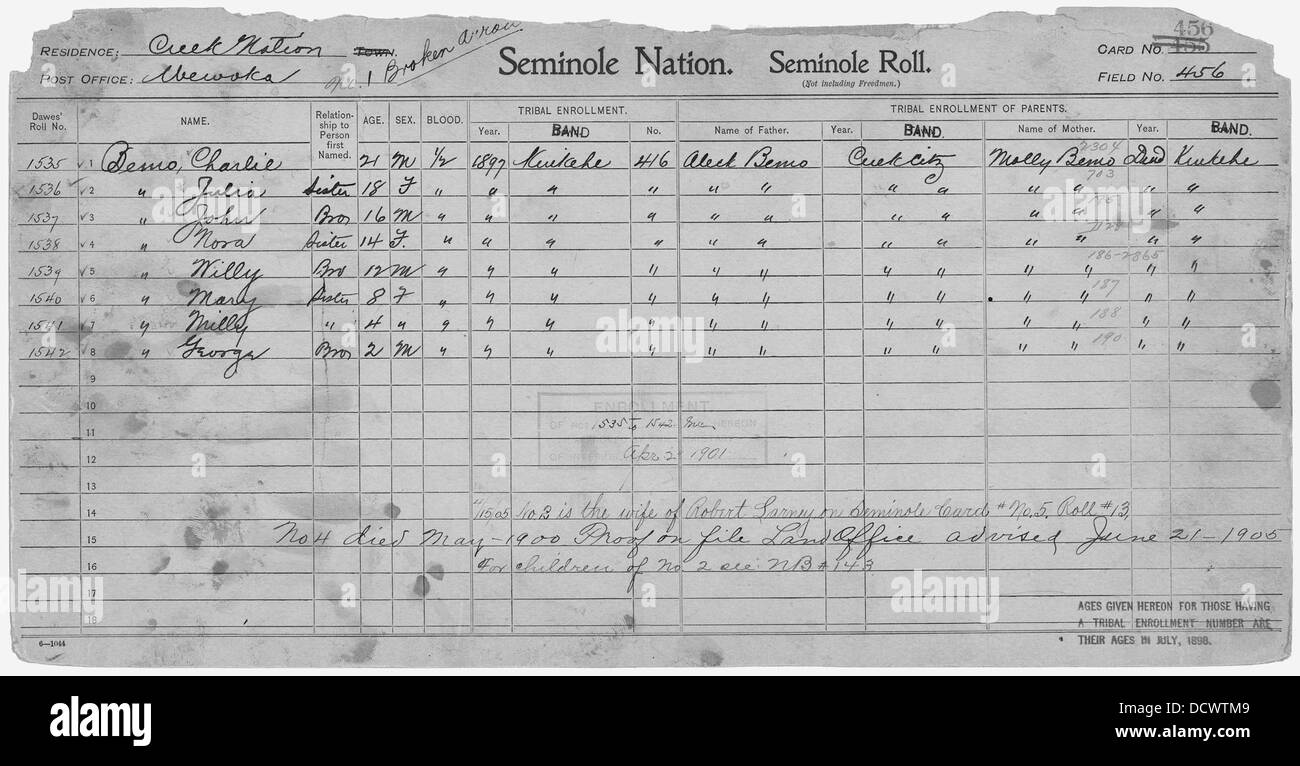 RESIDENCE: Creek Nation TOWN. Broken Arrow
POST OFFICE: Wewoka
Seminole Nation. Seminole Roll.
(Not including Freedmen.)
456
CARD NO.
FIELD NO. 456
Dawes' Roll No. NAME. Relationship to Person first Named. AGE. SEX. BLOOD. TRIBAL ENROLLMENT. TRIBAL ENROLLMENT OF PARENTS.
Year. BAND No. Name of Father. Year. BAND. Name of Mother. Year. BAND.
2304
1535 √ 1 Bemo, Charlie 21 M 1/2 1897 416 Aleck Bemo Creek Citz Molly Bemo Dead
703
1536 √ 2 " Julia Sister 18 F " " " " " " " " " " "
1537 √ 3 " John Bro 16 M " " " " " " " " " " " "
1538 √ 4 " Nora Sister 14 F. " " " " " " " " " " " "
186-2865
1539 √ 5 " Willy Bro 12 M " " " " " " " " " " " "
187
1540 √ 6 " Mary Sister 8 F " " " " " " " " " " " "
188
1541 √ 7 " Milly " 4 " " " " " " " " " " " " "
190
1542 √ 8 " George Bro 2 M " " " " " " " " " " " "
9
10
ENROLLMENT
11 1535 to 1542 Inc HEREON
12 Apr 2 1901
13
14 No 2 is the wife of Robert Larney on Seminole Card # No. 5. Roll #13
15 No 4 died May-1900 Proof on file Land Office advised June 21-1905
16 For children of No 2 see NB #143
17
18
AGES GIVEN HEREON FOR THOSE HAVING
A TRIBAL ENROLLMENT NUMBER ARE
THEIR AGES IN JULY, 1898.
6—1044
alamy
alamy
alamy
alamy
alamy
alamy
alamy
a
a
a
a
alamy
Image ID: DCWTM9
www.alamy.com